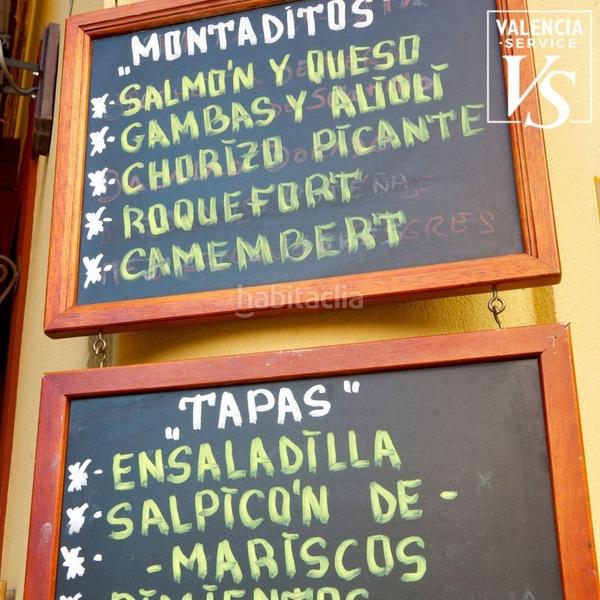 VALENCIA
·SERVICE·
VS
„MONTADITOS
*-SALMO'N Y QUESO
*-GAMBAS Y ALIOLI
*-CHORIZO PICANTE
*-ROQUEFORT
*-CAMEMBERT
habitaclia
„TAPAS"
*-ENSALADILLA
*-SALPICO'N DE-
*--MARISCOS
PIMIENTOS